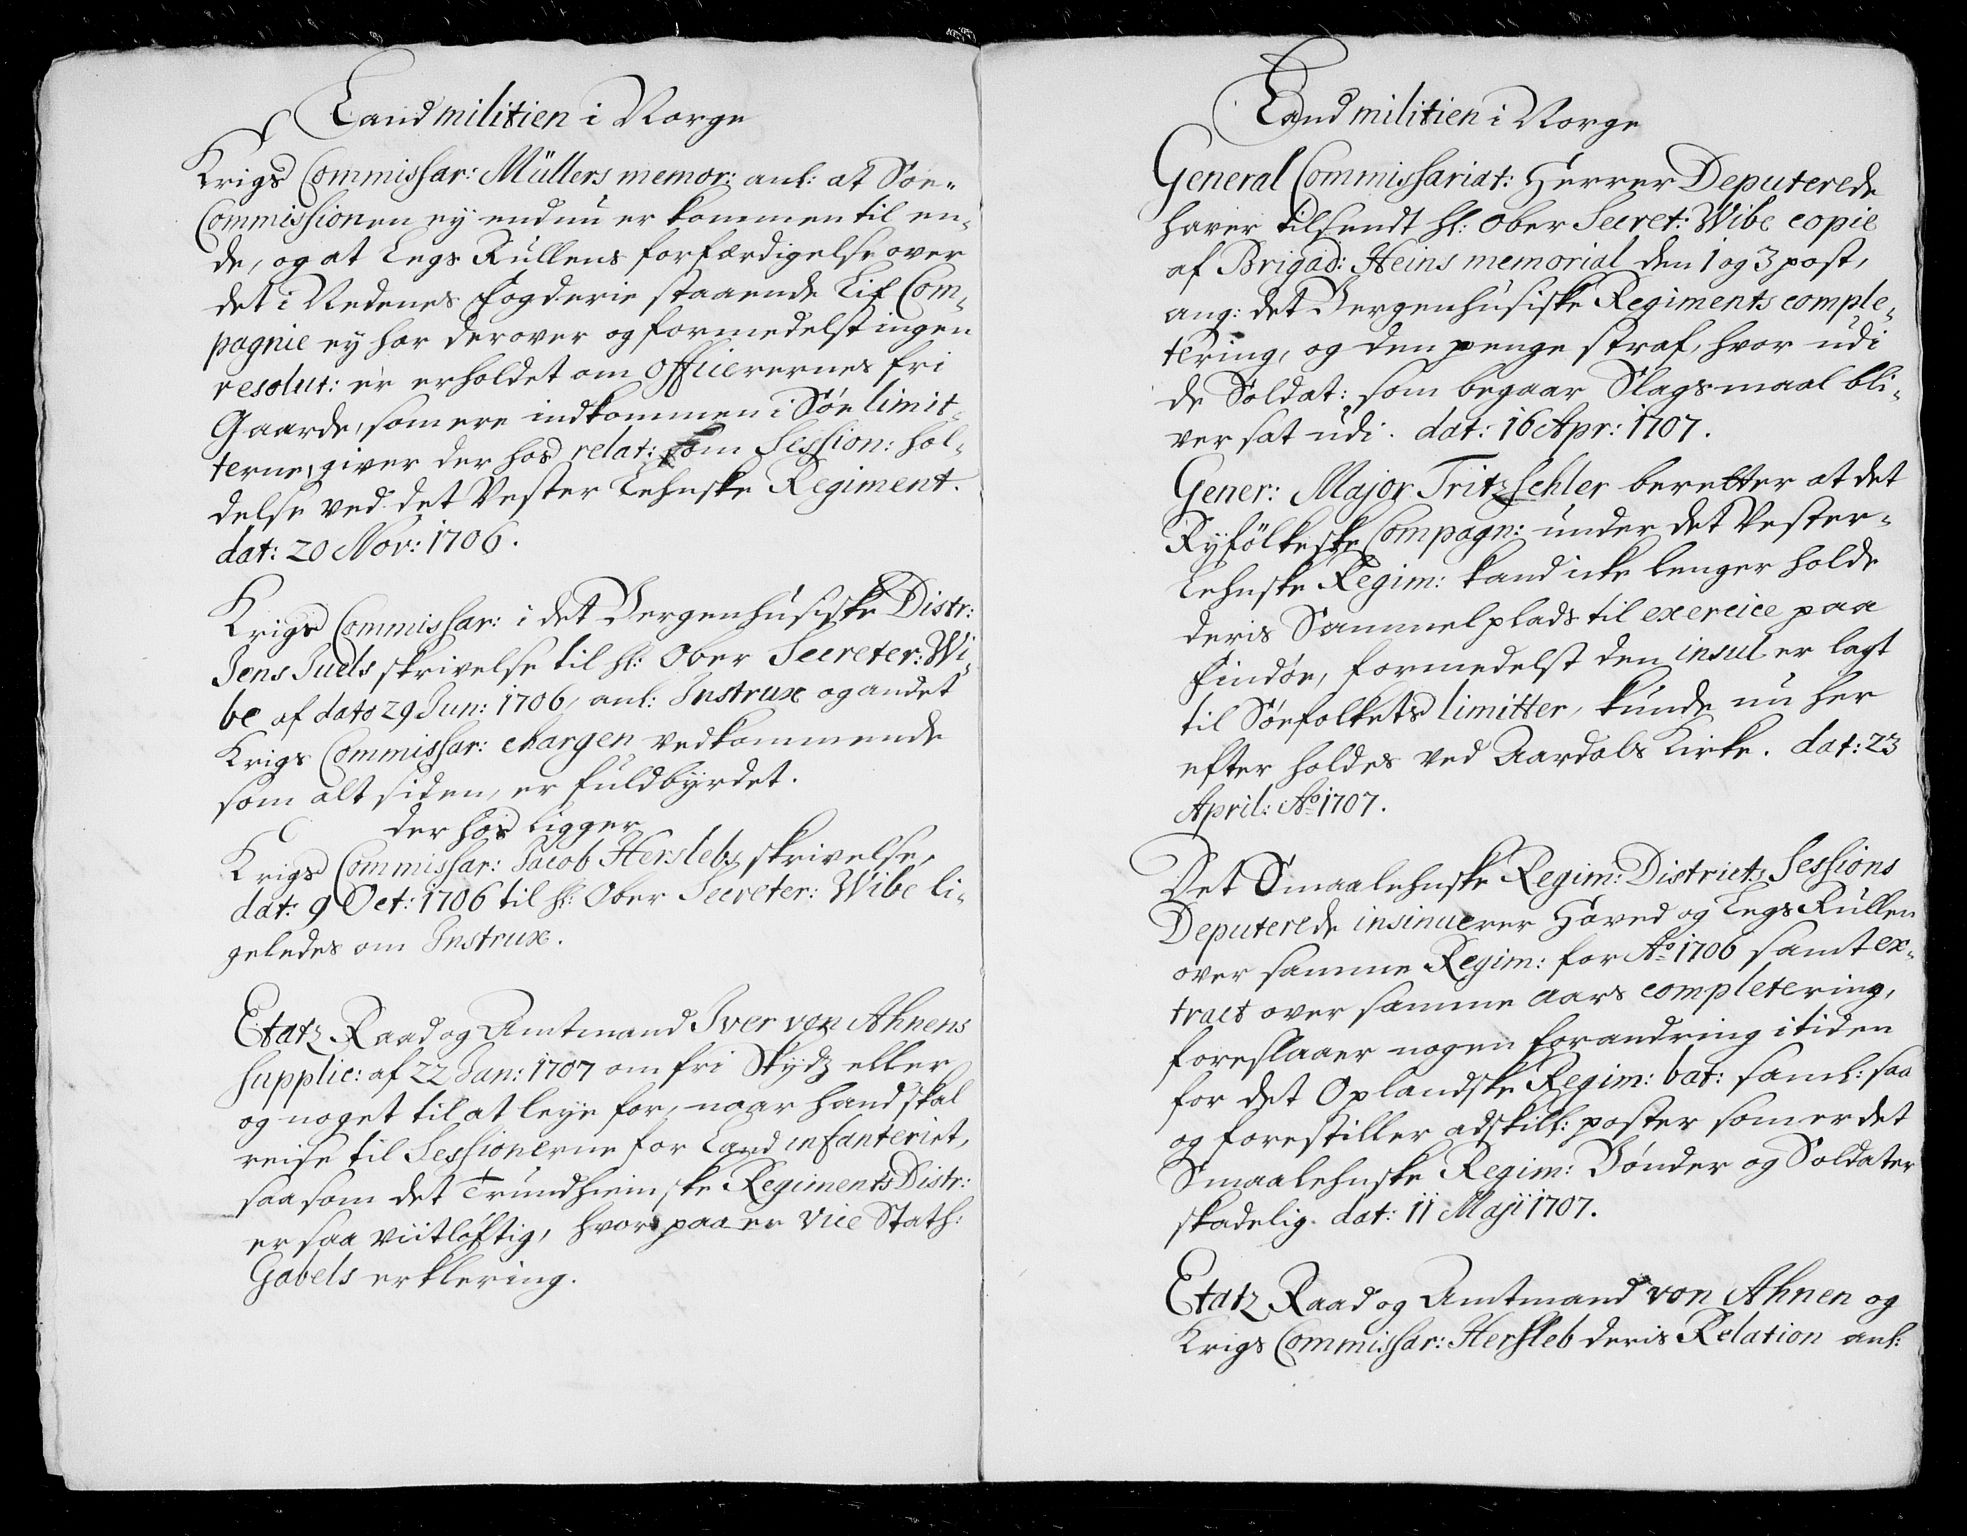 Landmilitien i Norge
Krigs Commissar: Müllers memor: anl: at Søe-
Commissionen ey endnu er kommen til en-
de, og at Legs Rullens forfærdigelse over
det i Nedenes Fogderie staaende Lif Com-
pagnie ey har derover og formedelst ingen
resolut: er erholdet om Officerernes fri
Gaarde, som ere indkommen i Søe limit-
terne, giver der hos relat: om Session: hol-
delse ved det Vester Lehnske Regiment.
dat: 20 Nov: 1706.
Krigs Commissar: i det Bergenhusiske Distr:
Jens Juels skrivelse til hl: Ober Secreter: Wi-
be af dato 29 Jun: 1706, anl: Instrux og andet
Krigs Commissar: chargen vedkommende
som alt siden, er fuldbyrdet.
der hos ligger
Krigs Commissar: Jacob Herslebs skrivelse,
dat: 9 Oct: 1706 til hl: Ober Secreter: Wibe li-
geledes om Instrux.
Etatz Raad og Amtmand Iver von Ahnens
supplic: af 22 Jan: 1707 om fri Skydz eller
og noget til at leye for, naar hand skal
reise til Sessionerne for Land infanteriet,
saasom det Trundhiemske Regiments Distr:
er saa viitløftig, hvor paa er Vice Stath:
Gabels erklering.
Landmilitien i Norge
General Commissariat: Herrer Deputerede
haver tilsendt hl: Ober Secret: Wibe copie
af Brigad: Heins memorial den 1 og 3 post,
ang: det Bergenhusiske Regiments comple-
tering, og den penge straf, hvor udi
de Soldat: som begaar Slagsmaal bli-
ver sat udi. dat: 16 Apr: 1707.
Gener: Major Tritzschler beretter at det
Ryfölkeske Compagn: under det Vester-
Lehnske Regim: kand icke lenger holde
deris Sammelplads til exercice paa
Findøe, formedelst den insul er lagt
til Søefolkets limitter, kunde nu her
efter holdes ved Aardals Kirke. dat: 23
April: Ao 1707.
Det Smaalehnske Regim: Districts Sessions
Deputerede insinuerer Hoved og Legs Rullen
over samme Regim: for Ao 1706 samt ex-
tract over samme Aars completering,
foreslaaer nogen forandring i tiden
for det Oplandske Regim: bat: saml: saa
og forestiller adskill: poster som er det
Smaalehnske Regim: Bønder og Soldater
skadelig. dat: 11 Maji 1707.
Etatz Raad og Amtmand von Ahnen og
Krigs Commissar: Hersleb deris Relation anl: